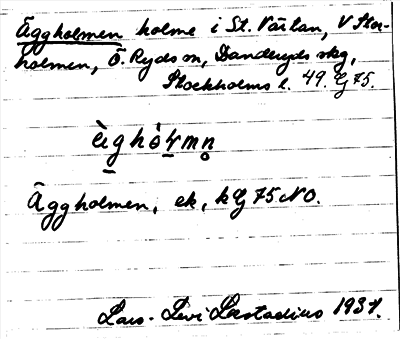 Äggholmen holme i St. Värtan, V Stor-
holmen, Ö. Ryds sn, Danderyds skg,
Stockholms l. 49. Ej 75.
Äggholmen, ek, k Ej 75 NO.
Lars-Levi Læstadius 1937.